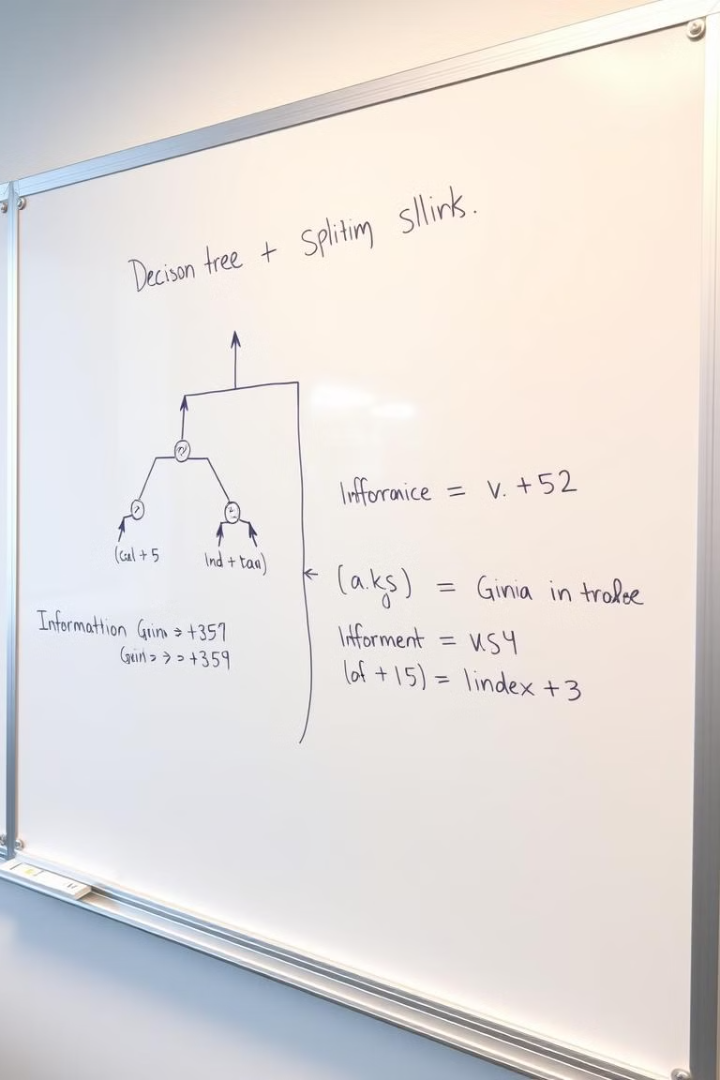 Decison tree + Splitim Sllink.
(Cal + 5
Ind + tan)
Informattion Grin > +357
Grin > > > +359
Infforanice = v. +52
(a.kgs) = Ginia in trolee
Infforment = us4
(of +15) = lindex +3